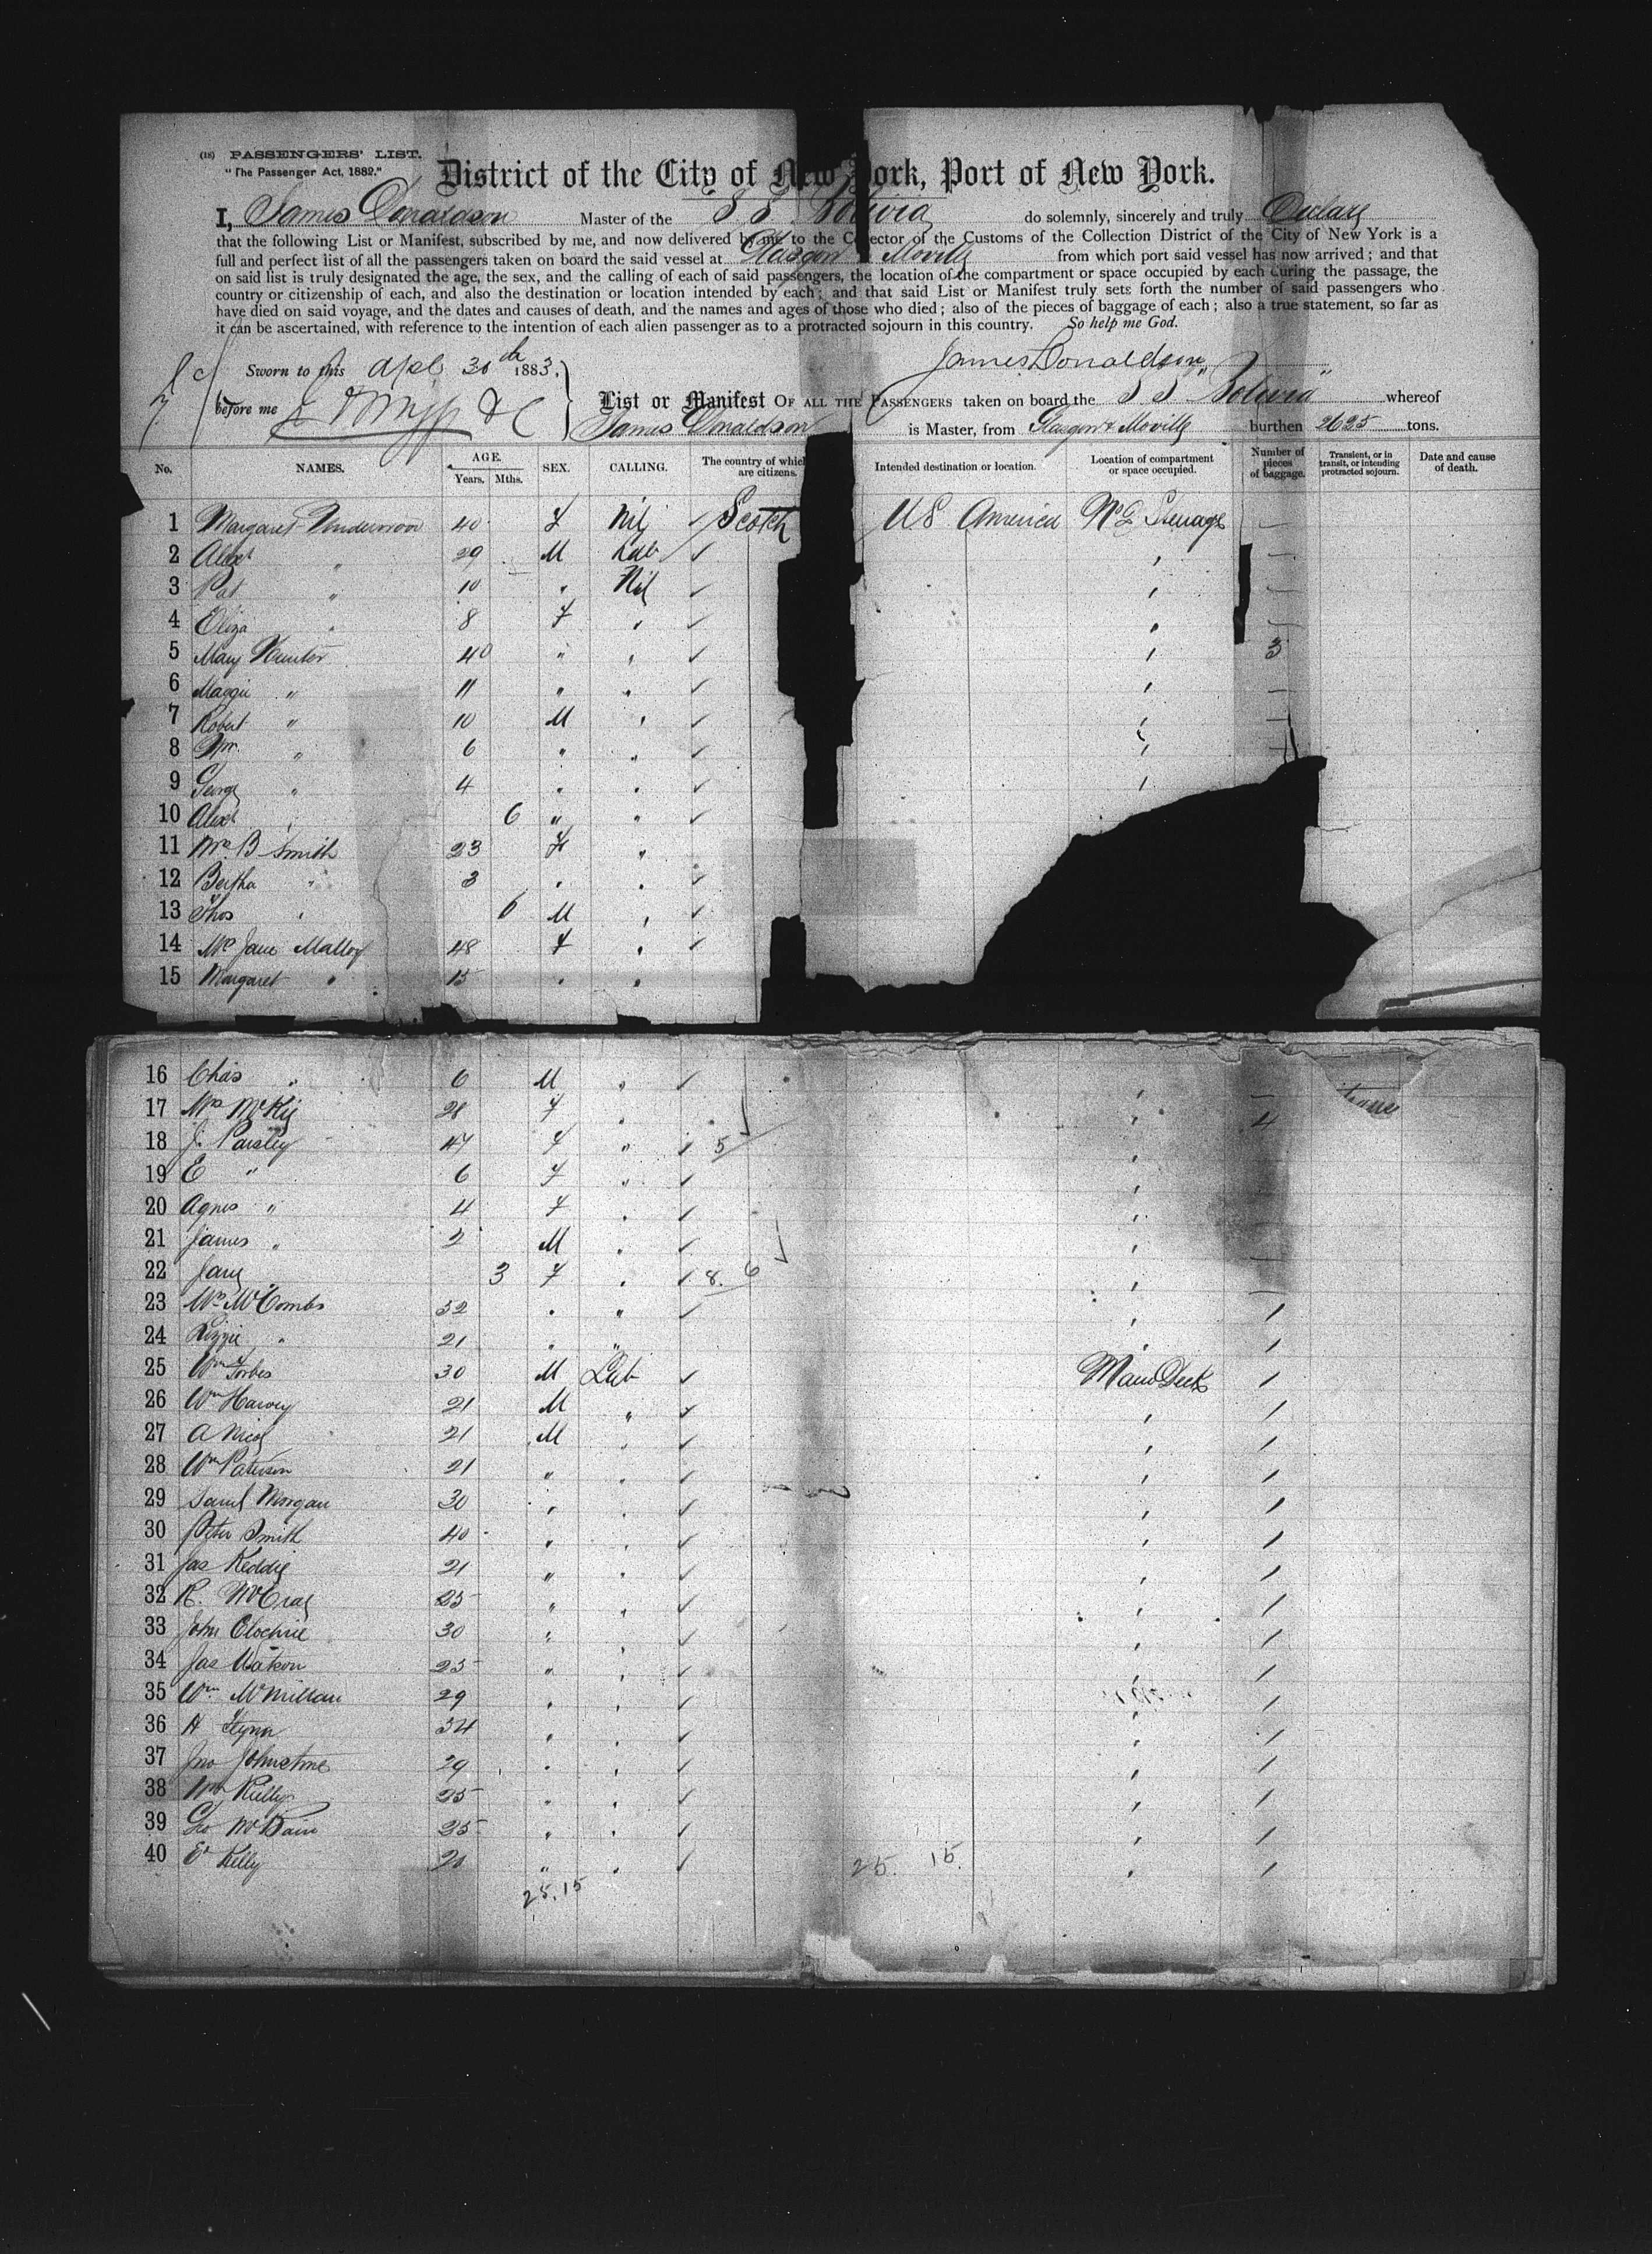 (18) PASSENGERS' LIST.
"The Passenger Act, 1882."
District of the City of New York, Port of New York.
I, James Donaldson Master of the S S Bolivia do solemnly, sincerely and truly Declare
that the following List or Manifest, subscribed by me, and now delivered by me to the Collector of the Customs of the Collection District of the City of New York is a
full and perfect list of all the passengers taken on board the said vessel at Glasgow & Moville from which port said vessel has now arrived; and that
on said list is truly designated the age, the sex, and the calling of each of said passengers, the location of the compartment or space occupied by each during the passage, the
country or citizenship of each, and also the destination or location intended by each; and that said List or Manifest truly sets forth the number of said passengers who
have died on said voyage, and the dates and causes of death, and the names and ages of those who died; also of the pieces of baggage of each; also a true statement, so far as
it can be ascertained, with reference to the intention of each alien passenger as to a protracted sojourn in this country. So help me God.
James Donaldson
Sworn to this Apl 30th 1883,
before me
List or Manifest OF ALL THE PASSENGERS taken on board the S S "Bolivia" whereof
James Donaldson is Master, from Glasgow & Moville burthen 2625 tons.
No. NAMES. AGE. Years. Mths. SEX. CALLING. The country of which are citizens. Intended destination or location. Location of compartment or space occupied. Number of pieces of baggage. Transient, or in transit, or intending protracted sojourn. Date and cause of death.
1 Margaret 40 F Nil ✓ Scotch US America No 2 Steerage —
2 Alexr " 29 M Lab ✓ " —
3 Pat " 10 " Nil ✓ " —
4 Eliza " 8 F " ✓ " —
5 Mary Hunter 40 " " ✓ " 3
6 Maggie " 11 " " ✓ " —
7 Robert " 10 M " ✓ " —
8 Wm " 6 " " ✓ "
9 George " 4 " " ✓ "
10 Alexr " 6 " " ✓
11 Mrs B Smith 23 F "
12 Bertha " 3 " " ✓
13 Thos " 6 M " ✓
14 Mrs Jane Malloy 48 F " ✓
15 Margaret " 15 " "
16 Chas " 6 M " ✓ " —
17 Mrs McKie 28 F " " 4
18 J. Paisley 47 F " ✓ 5 "
19 E " 6 F " ✓ "
20 Agnes " 4 F " ✓ "
21 James " 2 M " ✓ " —
22 Jane 3 F " ✓ 8. 6 " —
23 Mrs McCombs 32 " " ✓ " 1
24 Lizzie " 21 " " " 1
25 Wm Forbes 30 M Lab ✓ Main Deck 1
26 Wm Harvey 21 M " ✓ " 1
27 A Nicol 21 M " ✓ " 1
28 Wm Paterson 21 " " ✓ " 1
29 Saml Morgan 30 " " ✓ " 1
30 Peter Smith 40 " " ✓ " 1
31 Jas Keddie 21 " " ✓ " 1
32 R. McCrae 25 " " ✓ " 1
33 John Clochrie 30 " " ✓ " 1
34 Jas Watson 25 " " ✓ " 1
35 Wm McMillan 29 " " ✓ " 1
36 H Flynn 34 " " ✓ " 1
37 Jno Johnstone 29 " " ✓ " 1
38 Wm Reilly 25 " " ✓ " 1
39 Geo McBain 25 " " ✓ " 1
40 Ed Kelly 20 " " ✓ " 1
25.15 25. 15.